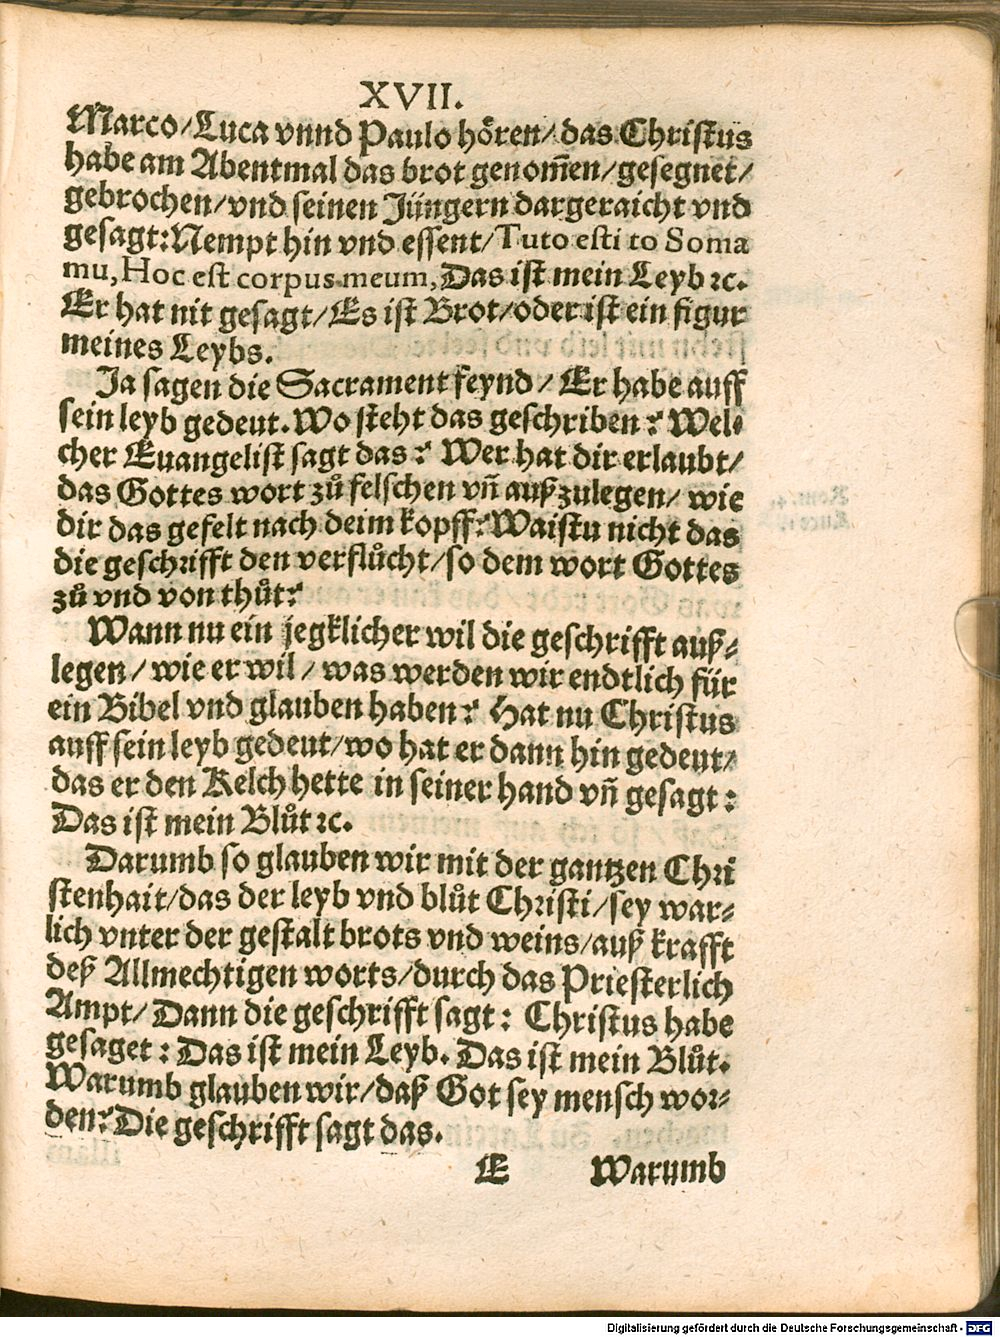 XVII.
Marco/Luca vnnd Paulo hoͤren/das Christus
habe am Abentmal das brot genom̃en/gesegnet/
gebrochen/vnd seinen Jüngern dargeraicht vnd
gesagt:Nempt hin vnd essent/Tuto esti to Soma
mu, Hoc est corpus meum, Das ist mein Leyb ꝛc.
Er hat nit gesagt/Es ist Brot/oder ist ein figur
meines Leybs.
Ja sagen die Sacrament feynd/ Er habe auff
sein leyb gedeut.Wo steht das geschriben? Wel⸗
cher Euangelist sagt das? Wer hat dir erlaubt/
das Gottes wort zů felschen vñ außzulegen/ wie
dir das gefelt nach deim kopff?Waistu nicht das
die geschrifft den verflůcht/so dem wort Gottes
zů vnd von thůt?
Wann nu ein jegklicher wil die geschrifft auß⸗
legen/ wie er wil/ was werden wir endtlich für
ein Bibel vnd glauben haben? Hat nu Christus
auff sein leyb gedeut/wo hat er dann hin gedeut/
das er den Kelch hette in seiner hand vñ gesagt:
Das ist mein Blůt ꝛc.
Darumb so glauben wir mit der gantzen Chri
stenhait/das der leyb vnd blůt Christi/sey war⸗
lich vnter der gestalt brots vnd weins/auß krafft
deß Allmechtigen worts/durch das Priesterlich
Ampt/ Dann die geschrifft sagt: Christus habe
gesaget: Das ist mein Leyb. Das ist mein Blůt.
Warumb glauben wir/daß Got sey mensch wor⸗
den?Die geschrifft sagt das.
E Warumb
Digitalisierung gefördert durch die Deutsche Forschungsgemeinschaft - DFG